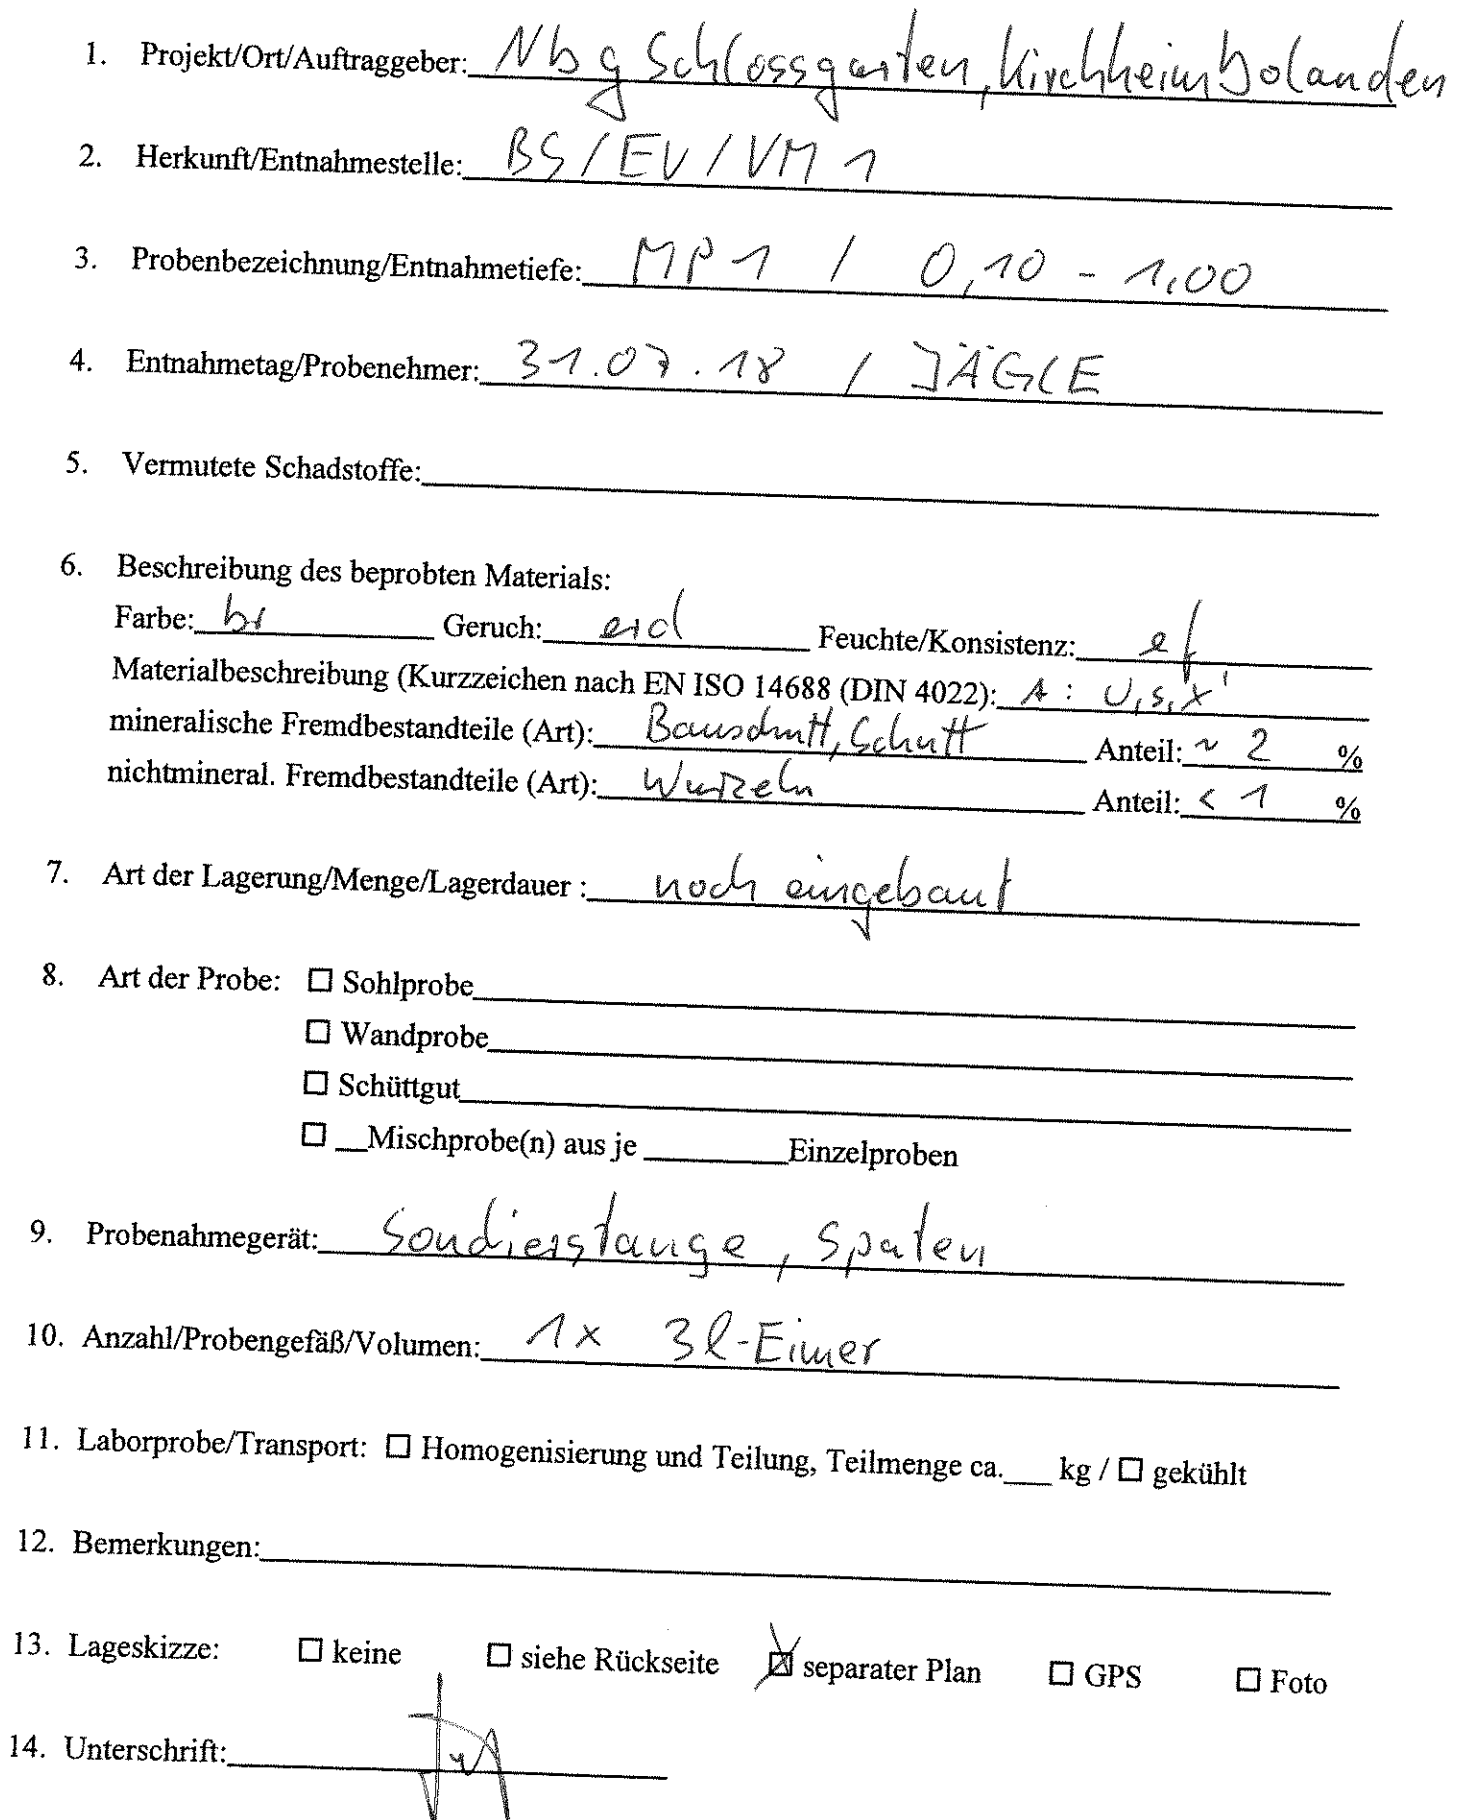 1. Projekt/Ort/Auftraggeber: Nbg Schlossgarten, Kirchheimbolanden
2. Herkunft/Entnahmestelle: BS / EV / VM 1
3. Probenbezeichnung/Entnahmetiefe: MP1 / 0,10 - 1,00
4. Entnahmetag/Probenehmer: 31.07.18 / JÄGLE
5. Vermutete Schadstoffe:
6. Beschreibung des beprobten Materials:
Farbe: br Geruch: erd Feuchte/Konsistenz: ef
Materialbeschreibung (Kurzzeichen nach EN ISO 14688 (DIN 4022): A : U,s,x'
mineralische Fremdbestandteile (Art): Bauschutt, Schutt Anteil: ~ 2 %
nichtmineral. Fremdbestandteile (Art): Wurzeln Anteil: < 1 %
7. Art der Lagerung/Menge/Lagerdauer : noch eingebaut
8. Art der Probe: ☐ Sohlprobe
☐ Wandprobe
☐ Schüttgut
☐ __Mischprobe(n) aus je ________Einzelproben
9. Probenahmegerät: Sondierstange, Spaten
10. Anzahl/Probengefäß/Volumen: 1x 3l-Eimer
11. Laborprobe/Transport: ☐ Homogenisierung und Teilung, Teilmenge ca.___ kg / ☐ gekühlt
12. Bemerkungen:
13. Lageskizze: ☐ keine ☐ siehe Rückseite ☒ separater Plan ☐ GPS ☐ Foto
14. Unterschrift: